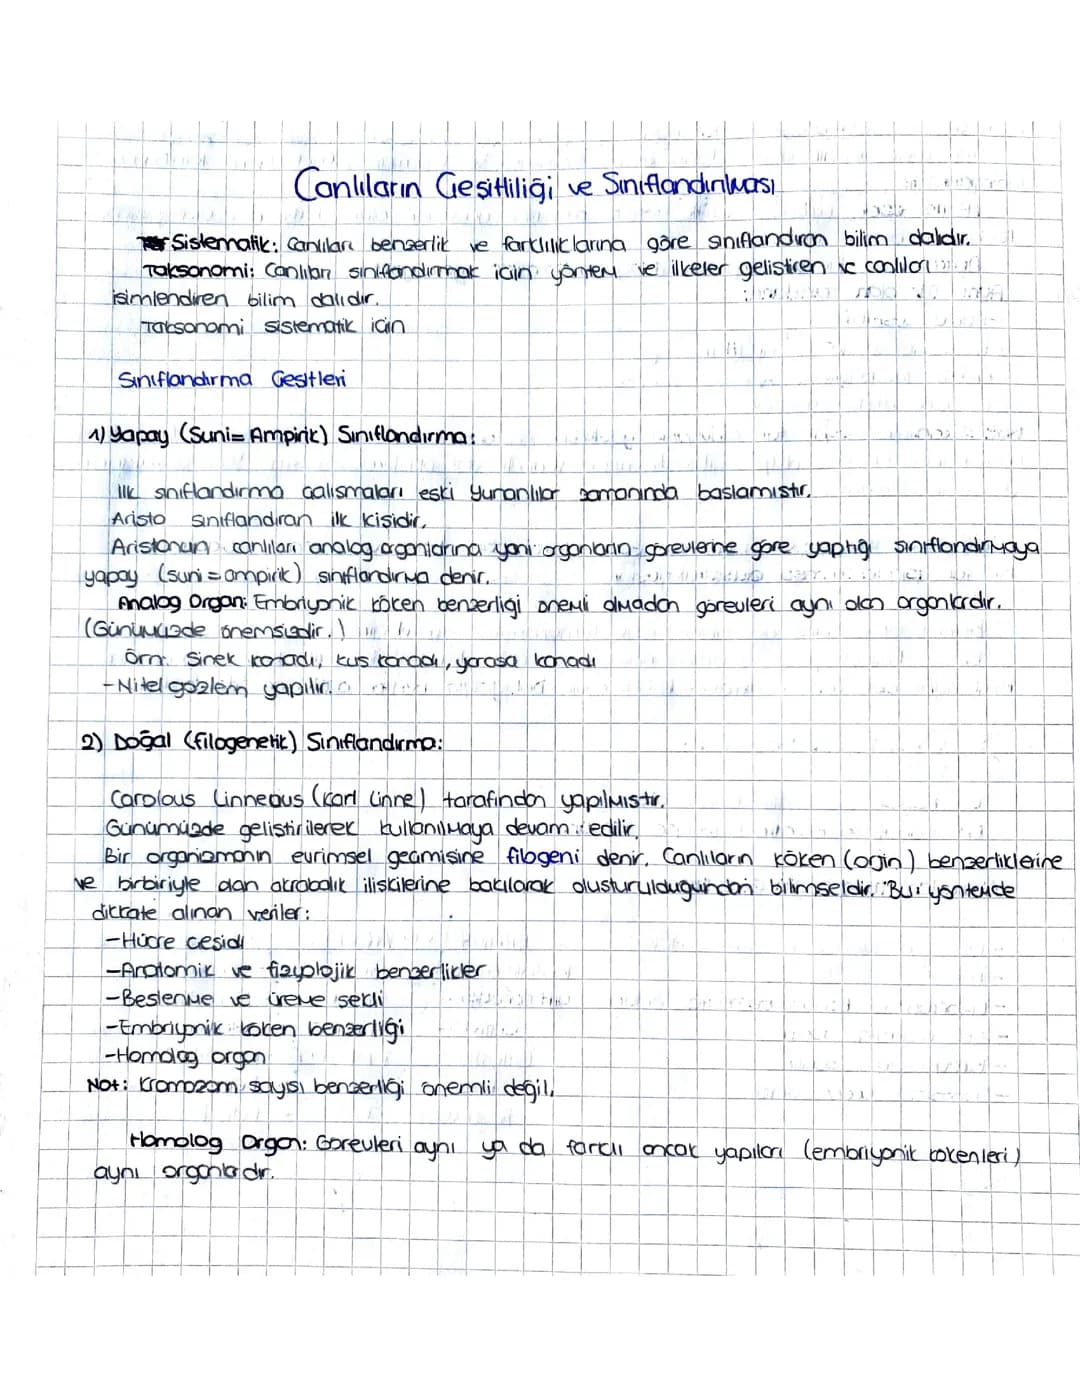 Canlıların Çeşitliliği ve Sınıflandırılması
Sistematik: Canlıları benzerlik ve farklılıklarına göre sınıflandıran bilim dalıdır.
Taksonomi: Canlıları sınıflandırmak icin yöntem ve ilkeler gelistiren ve canlıları
isimlendiren bilim dalıdır.
Taksonomi sistematik icin
Sınıflandırma Cesitleri
1) Yapay (Suni= Ampirik) Sınıflandırma:
İlk sınıflandırma calısmaları eski Yunanlılar zamanında baslamıstır.
Aristo sınıflandıran ilk kisidir.
Aristonun canlıları analog organlarına yani organların görevlerine göre yaptığı sınıflandırmaya
yapay (suni=ampirik) sınıflandırma denir.
Analog Organ: Embriyonik köken benzerligi önemi olmadan görevleri aynı olan organlardır.
(Günümüzde önemsizdir.)
Örn: Sinek kanadı, kus kanadı, yarasa kanadı
-Nitel gözlem yapılır.
2) Doğal (filogenetik) Sınıflandırma:
Carolous Linneous (Karl Linne) tarafından yapılmıstır.
Günümüzde gelistirilerek kullanılmaya devam edilir.
Bir organizmanın evrimsel gecmisine filogeni denir. Canlıların köken (orjin) benzerliklerine
ve birbiriyle olan akrabalık iliskilerine bakılarak olusturulduğundan bilimseldir. Bu yöntemde
dikkate alınan veriler:
-Hücre cesidi
-Anatomik ve fizyolojik benzerlikler
-Beslenme ve üreme sekli
-Embriyonik köken benzerliği
-Homolog organ
Not: Kromozom sayısı benzerliği önemli değil.
Homolog Organ: Görevleri aynı ya da farklı ancak yapıları (embriyonik kökenleri)
aynı organlardır.